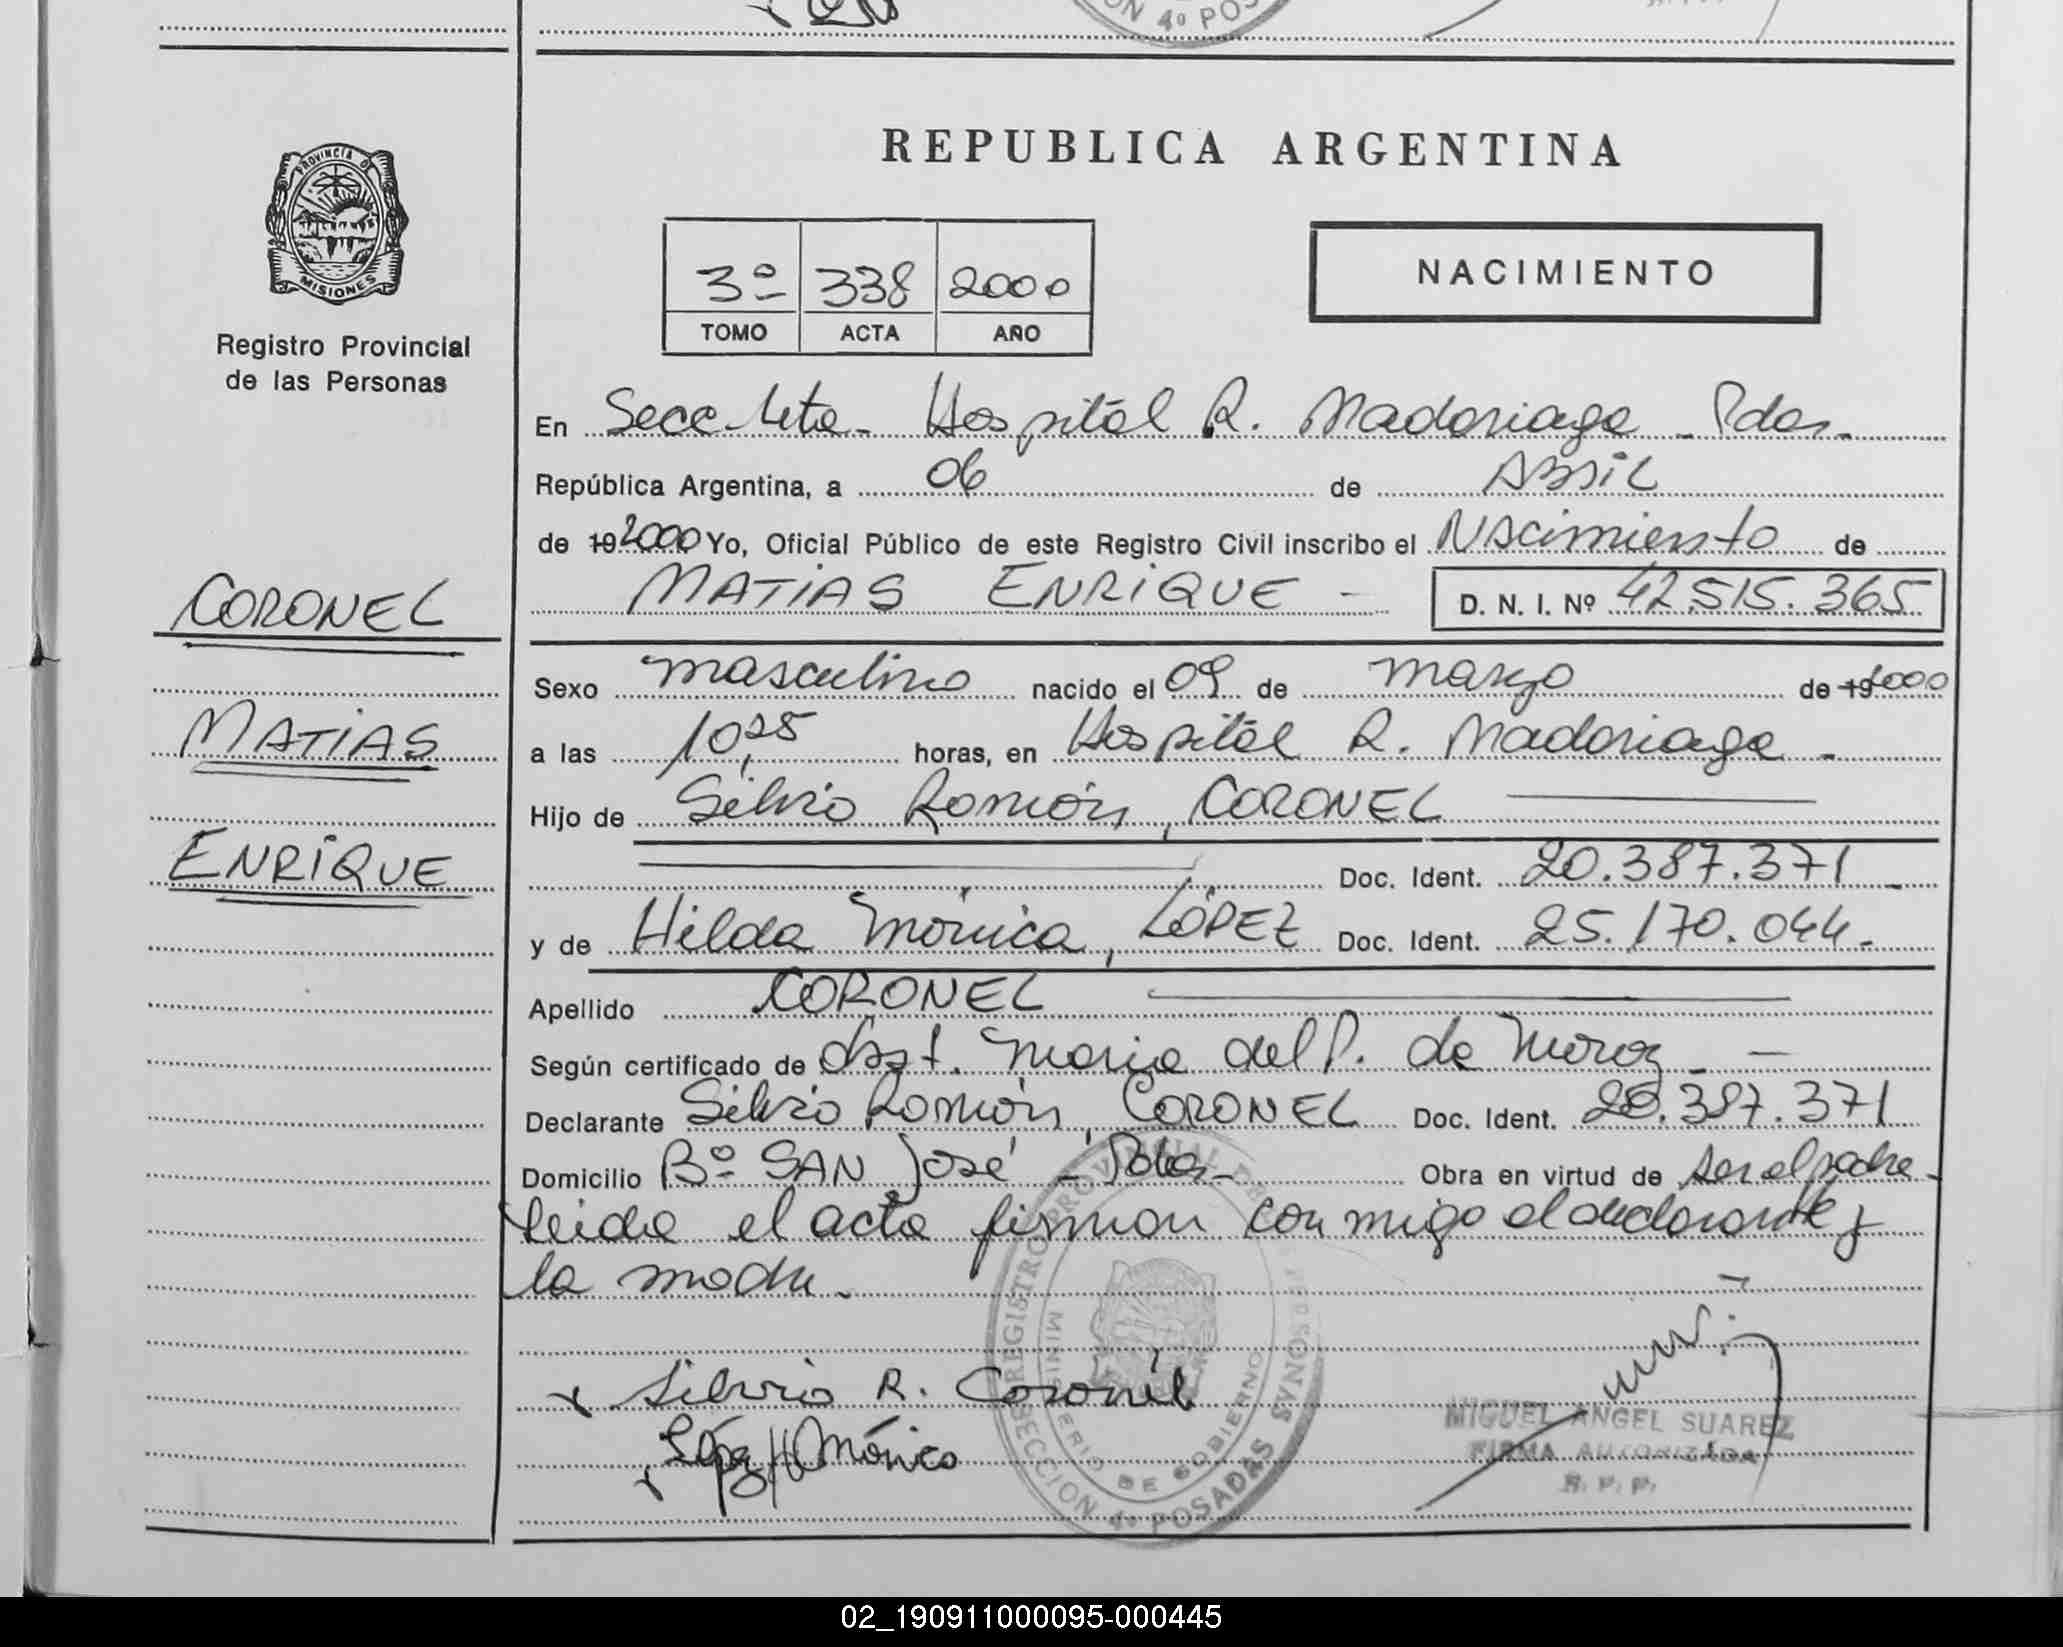 CION 4º POS
PROVINCIA DE
MISIONES
Registro Provincial
de las Personas
CORONEL
MATIAS
ENRIQUE
REPUBLICA ARGENTINA
3º 338 2000
TOMO ACTA AÑO
NACIMIENTO
En Secc 4ta - Hospital R. Madariaga - Pdas.
República Argentina, a 06 de Abril
de 19 2000 Yo, Oficial Público de este Registro Civil inscribo el Nacimiento de
MATIAS ENRIQUE - D. N. I. Nº 42.515.365
Sexo masculino nacido el 09 de marzo de 19 2000
a las 10,25 horas, en Hospital R. Madariaga -
Hijo de Silvio Ramón, CORONEL
Doc. Ident. 20.387.371 -
y de Hilda Mónica, LÓPEZ Doc. Ident. 25.170.044.
Apellido CORONEL
Según certificado de Obst. Maria del P. de -
Declarante Silvio Ramón, CORONEL Doc. Ident. 20.387.371
Domicilio Bº SAN José - Pdas - Obra en virtud de ser el padre -
leida el acta firman conmigo el declarante y
la madre.
x Silvio R. Coronel
x López H Mónica
REGISTRO PROVINCIAL DE LAS PERSONAS
MINISTERIO DE GOBIERNO
SECCION 4º POSADAS
MIGUEL ANGEL SUAREZ
FIRMA AUTORIZADA
R. P. P.
02_190911000095-000445